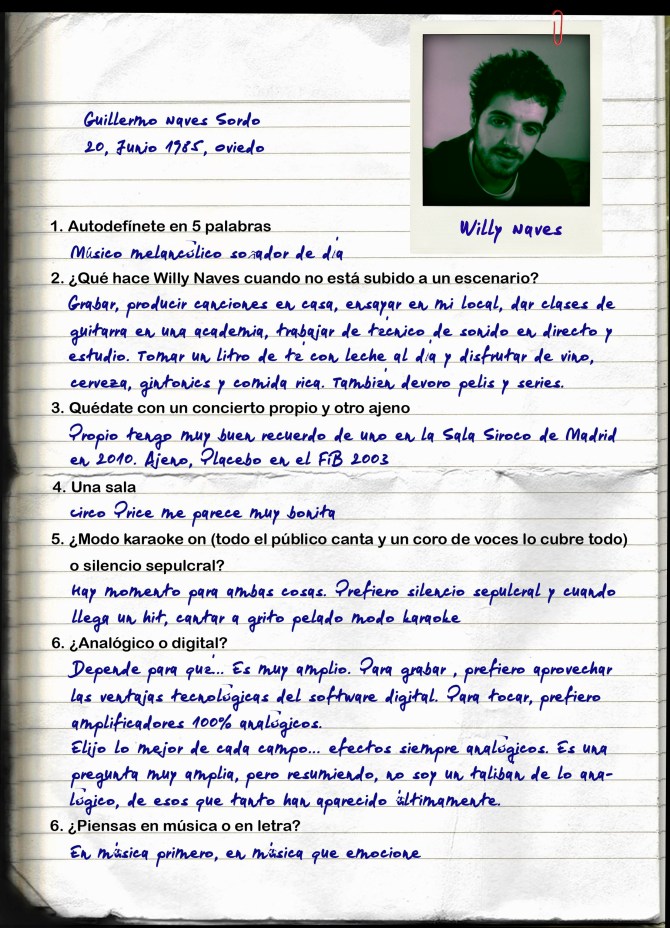 Guillermo Naves Sordo
20, Junio 1985, Oviedo
Willy Naves
1. Autodefínete en 5 palabras
Músico melancólico soñador de día
2. ¿Qué hace Willy Naves cuando no está subido a un escenario?
Grabar, producir canciones en casa, ensayar en mi local, dar clases de
guitarra en una academia, trabajar de técnico de sonido en directo y
estudio. Tomar un litro de té con leche al día y disfrutar de vino,
cerveza, gintonics y comida rica. También devoro pelis y series.
3. Quédate con un concierto propio y otro ajeno
Propio tengo muy buen recuerdo de uno en la Sala Siroco de Madrid
en 2010. Ajeno, Placebo en el FIB 2003
4. Una sala
Circo Price me parece muy bonita
5. ¿Modo karaoke on (todo el público canta y un coro de voces lo cubre todo)
o silencio sepulcral?
Hay momento para ambas cosas. Prefiero silencio sepulcral y cuando
llega un hit, cantar a grito pelado modo karaoke
6. ¿Analógico o digital?
Depende para qué... Es muy amplio. Para grabar , prefiero aprovechar
las ventajas tecnológicas del software digital. Para tocar, prefiero
amplificadores 100% analógicos.
Elijo lo mejor de cada campo... efectos siempre analógicos. Es una
pregunta muy amplia, pero resumiendo, no soy un taliban de lo ana-
lógico, de esos que tanto han aparecido últimamente.
6. ¿Piensas en música o en letra?
En música primero, en música que emocione